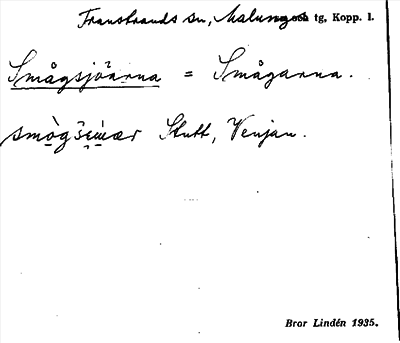 Transtrands sn, Malungs tg, Kopp. l.
Smågsjöarna = Smågarna.
Stutt, Venjan.
Bror Lindén 1935.